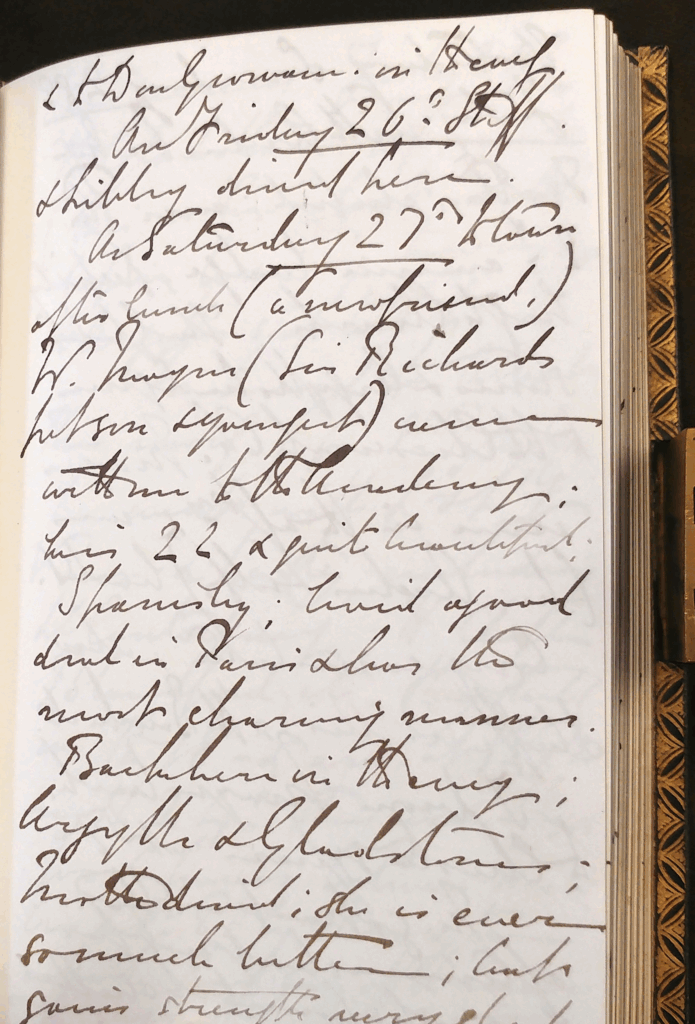 & to in the evg
On Friday 26th Stiff
& Libby dined here.
On Saturday 27th to town
after lunch (a new friend,)
W. Mayne (Sir Richards
1st son & youngest) came
with me to the Academy;
he is 22 & quite beautiful;
Spanishy; lived a good
deal in Paris & has the
most charming manner.
Back here in the evg;
Argylls & Gladstones;
dined; she is ever
so much better; but
gains strength very